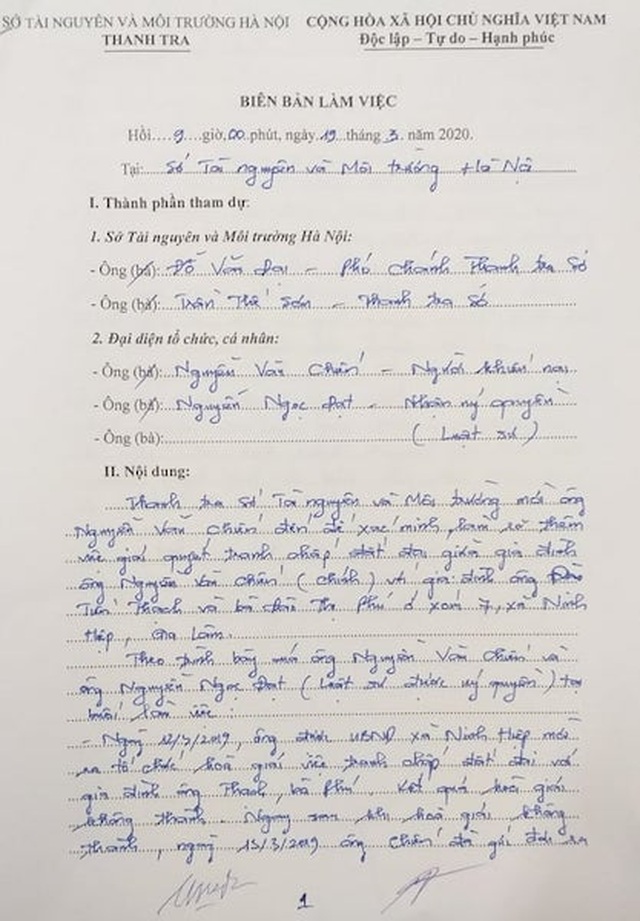 SỞ TÀI NGUYÊN VÀ MÔI TRƯỜNG HÀ NỘI CỘNG HÒA XÃ HỘI CHỦ NGHĨA VIỆT NAM
THANH TRA Độc lập – Tự do – Hạnh phúc
BIÊN BẢN LÀM VIỆC
Hồi....9....giờ,00.phút, ngày.19...tháng.3. năm 2020.
Tại: Sở Tài nguyên và Môi trường Hà Nội
I. Thành phần tham dự:
1. Sở Tài nguyên và Môi trường Hà Nội:
- Ông (bà): Đỗ Văn Đại – Phó chánh Thanh tra Sở
- Ông (bà): Trần Thế Sơn – Thanh tra Sở
2. Đại diện tổ chức, cá nhân:
- Ông (bà): Nguyễn Văn Chiến – Người khiếu nại
- Ông (bà): Nguyễn Ngọc Đạt – Nhận uỷ quyền
- Ông (bà): (Luật sư)
II. Nội dung:
Thanh tra Sở Tài nguyên và Môi trường mời ông
Nguyễn Văn Chiến đến để xác minh, làm rõ thêm
việc giải quyết tranh chấp đất đai giữa gia đình
ông Nguyễn Văn Chiến (chính) và gia đình ông
Tiến Thạch và bà Thị Phú ở xóm 7, xã Ninh
Hiệp, Gia Lâm.
Theo trình bày của ông Nguyễn Văn Chiến và
ông Nguyễn Ngọc Đạt (Luật sư được uỷ quyền) tại
buổi làm việc:
- Ngày 12/3/2019, ông được UBND xã Ninh Hiệp mời
ra tổ chức hoà giải việc tranh chấp đất đai với
gia đình ông Thạch, bà Phú. Kết quả hoà giải
không thành. Ngay sau khi hoà giải không
thành, ngày 15/3/2019 ông Chiến đã gửi đơn ra
1